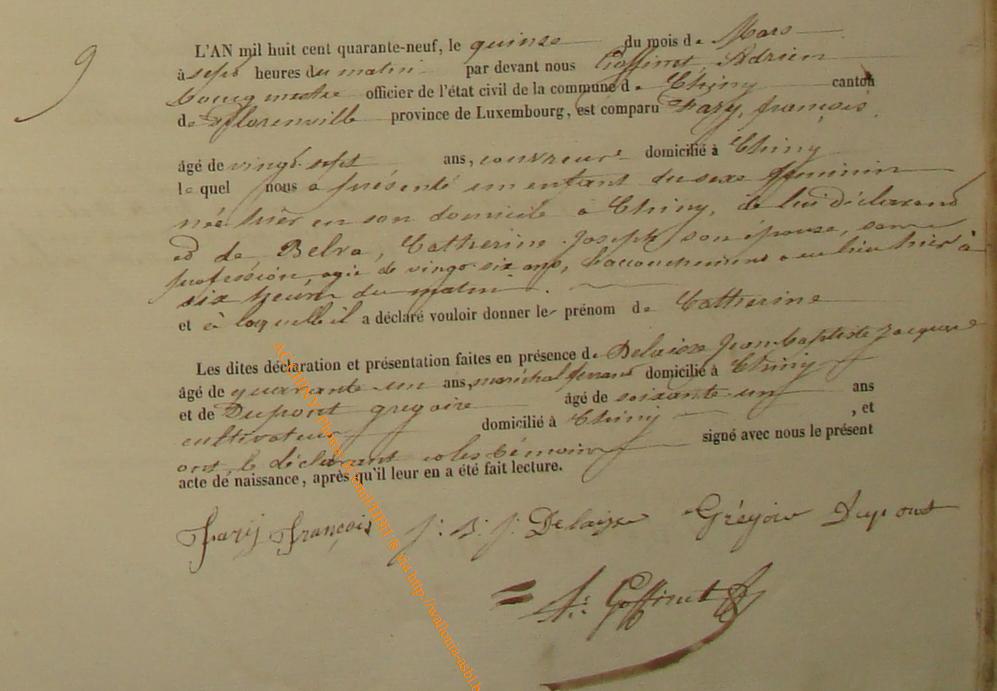 9
L'AN mil huit cent quarante-neuf, le quinze du mois de Mars
à sept heures du matin par devant nous Goffinet, Adrien
bourgmestre officier de l'état civil de la commune de Chiny canton
de florenville province de Luxembourg, est comparu Fazy, françois
âgé de vingt sept ans, couvreur domicilié à Chiny
lequel nous a présenté un enfant du sexe feminin
née hier en son domicile à Chiny, de lui déclarant
et de Belva, Catherine Joseph son épouse, sans
profession, agée de vingt six ans, l'accouchement a eu lieu hier à
six heures du matin.
et à laquelle il a déclaré vouloir donner le prénom de Catherine
Les dites déclaration et présentation faites en présence de Delaisse Jean baptiste Jacques
âgé de quarante un ans, maréchal ferrant domicilié à Chiny
et de Dupont gregoire âgé de soixante un ans
cultivateur domicilié à Chiny , et
ont le déclarant et les témoins signé avec nous le présent
acte de naissance, après qu'il leur en a été fait lecture.
Fazy François J. B. J. Delaisse Grégoire Dupont
A. Goffinet
via http://wallonia-asbl.b